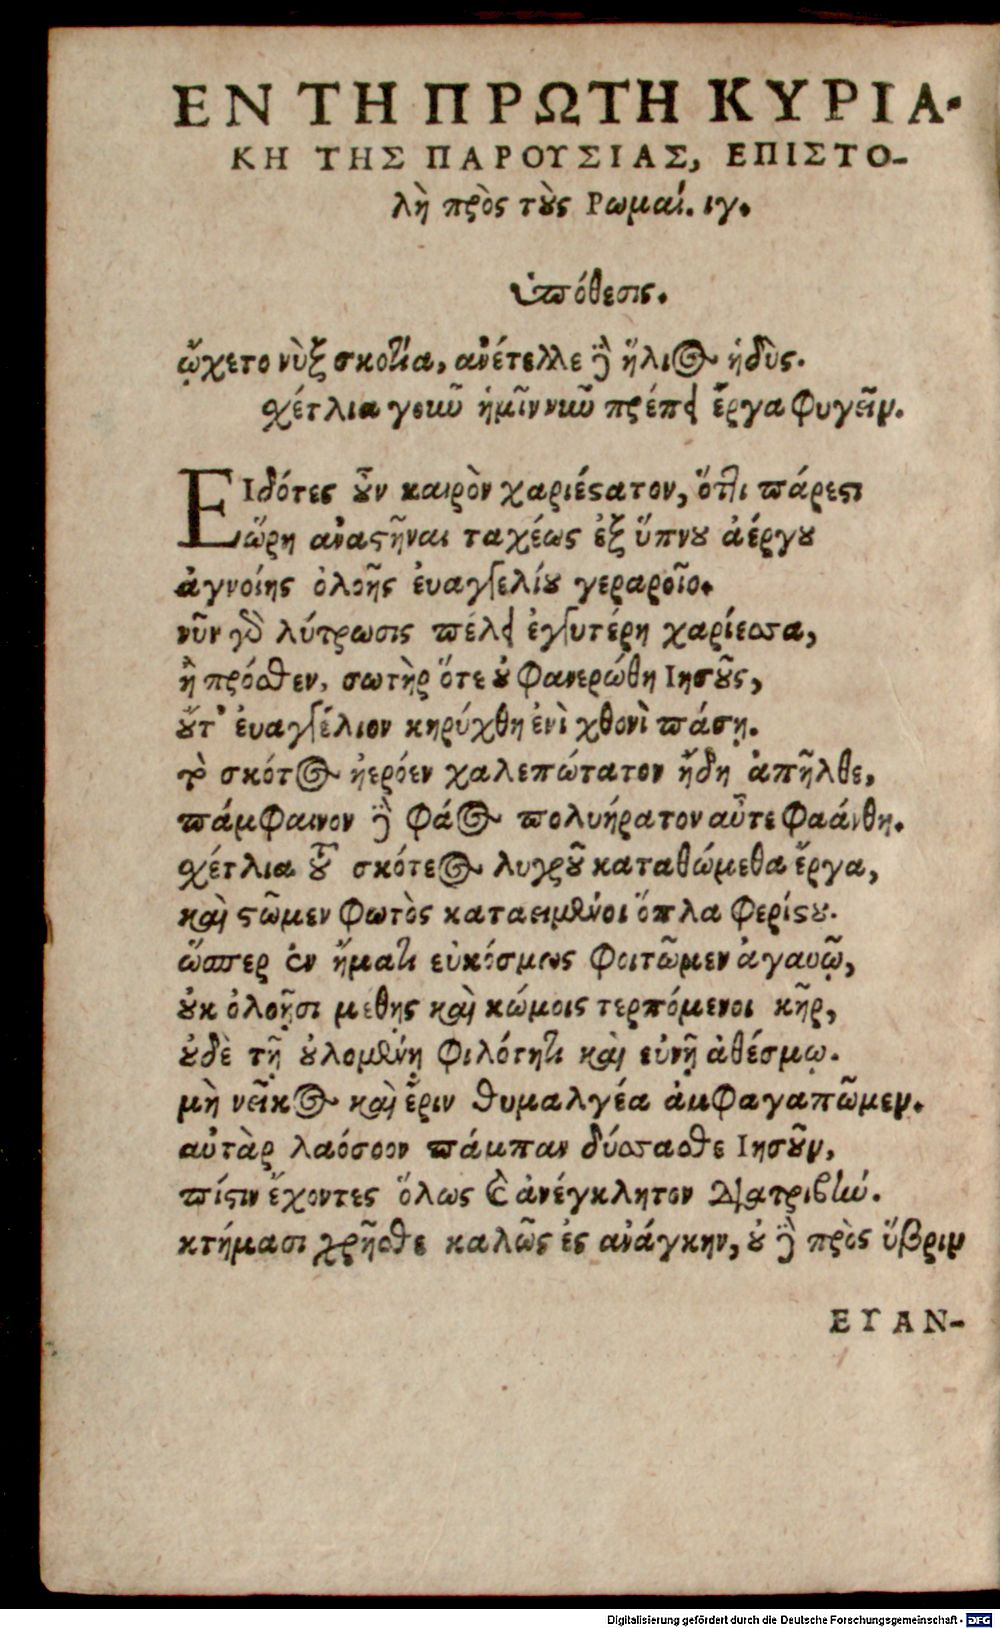 ΕΝ ΤΗ ΠΡΩΤΗ ΚΥΡΙΑ-
ΚΗ ΤΗΣ ΠΑΡΟΥΣΙΑΣ, ΕΠΙΣΤΟ-
λὴ πρὸς τοὺς Ρωμαί. ιγ.
ὑπόθεσις.
ᾤχετο νὺξ σκοτία, ἀνέτελλε δὲ ἥλιος ἡδὺς.
σχέτλια γοιιῦ ἡμῖν νιιῦ πρέπει ἔργα φυγεῖν.
ΕΙδότες οὖν καιρὸν χαριέστατον, ὅτι πάρεστι
ὥρη ἀναστῆναι ταχέως ἐξ ὕπνου ἀέργου
ἀγνοίης ὀλοῆς ἐυαγγελίου γεραροῖο.
νῦν γὸ λύτρωσις πέλει ἐγγυτέρη χαρίεσσα,
ἢ πρόσθεν, σωτὴρ ὅτε οὐ φανερώθη Ιησοῦς,
οὔτ' ἐυαγγέλιον κηρύχθη ἐνὶ χθονὶ πάσῃ.
τὸ σκότος ἠερόεν χαλεπώτατον ἤδη ἀπῆλθε,
πάμφαινον δὲ φάος πολυήρατον αὖτε φαάνθη.
σχέτλια τοῦ σκότεος λυγροῦ καταθώμεθα ἔργα,
καὶ στῶμεν φωτὸς καταειμένοι ὅπλα φερίστου.
ὥσπερ ἐν ἤματι εὐκόσμως φοιτῶμεν ἀγαυῷ,
οὐκ ὀλοῇσι μέθης καὶ κώμοις τερπόμενοι κῆρ,
οὐδὲ τῇ οὐλομένῃ φιλότητι καὶ εὐνῇ ἀθέσμῳ.
μὴ νεῖκος καὶ ἔριν θυμαλγέα ἀμφαγαπῶμεν.
αὐτὰρ λαόσοον πάμπαν δύσασθε Ιησοῦν,
πίστιν ἔχοντες ὅλως καὶ ἀνέγκλητον διατριβήν.
κτήμασι χρῆσθε καλῶς ἐς ἀνάγκην, οὐ δὲ πρὸς ὕβριν
ΕΥΑΝ-
Digitalisierung gefördert durch die Deutsche Forschungsgemeinschaft - DFG